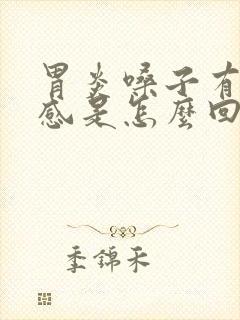 胃炎嗓子有
感是怎麼回
季錦禾